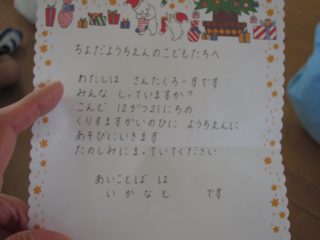 ちよだようちえんのこどもたちへ
わたしは さんたくろーすです
みんな しっていますか？
こんど 12がつ21にちの
くりすますかいのひに ようちえんに
あそびにいきます
たのしみにまっていてください
あいことば は
いかなと です